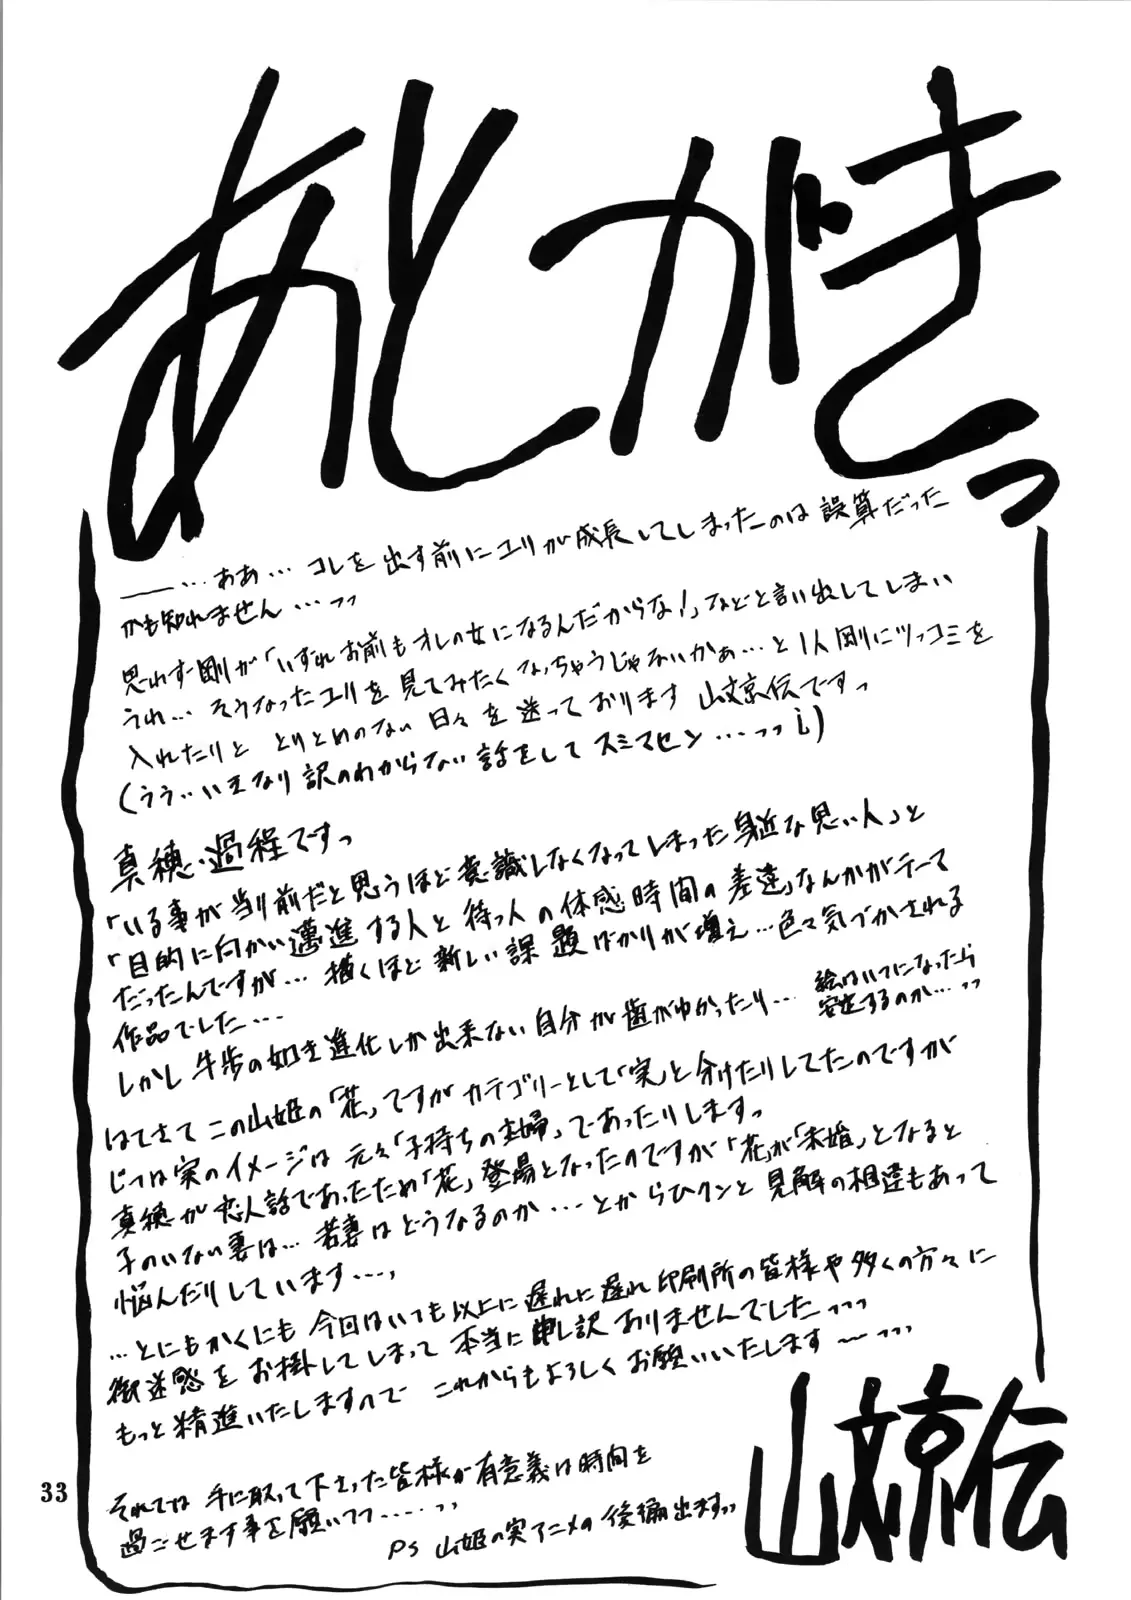 あとがきっ
――…ああ… コレを出す前にユリが成長してしまったのは誤算だった
かも知れません…っっ
思わず剛が「いずれお前もオレの女になるんだからな!」などと言い出してしまい
うれ… そうなったユリを見てみたくなっちゃうじゃないかぁ…と1人剛にツッコミを
入れたりと とりとめのない日々を送っております 山文京伝ですっ
(うう…いきなり訳のわからない話をしてスミマセン…っっ;)
真穂・過程ですっ
「いる事が当り前だと思うほど意識しなくなってしまった身近な思い人」と
「目的に向かい邁進する人と待つ人の体感時間の差違」なんかがテーマ
だったんですが… 描くほど新しい課題ばかりが増え…色々気づかされる
作品でした…
しかし牛歩の如き進化しか出来ない自分が歯がゆかったり…
絵はいつになったら
安定するのか…っっ
はてさてこの山姫の「花」ですがカテゴリーとして「実」と分けたりしてたのですが
じつは実のイメージは元々「子持ちの主婦」であったりしますっ
真穂が恋人話であったため「花」登場となったのですが「花」が「未婚」となると
子のいない妻は… 若妻はどうなるのか…とからひクンと見解の相違もあって
悩んだりしています…、
…とにもかくにも今回はいつも以上に遅れに遅れ印刷所の皆様や多くの方々に
御迷惑をお掛してしまって本当に申し訳ありませんでした…っっ
もっと精進いたしますので これからもよろしくお願いいたします〜っっ
それでは 手に取って下さった皆様が有意義は時間を
過ごせます事を願いつつ……っっ
PS 山姫の実アニメの後編出ますっっ
山文京伝
33